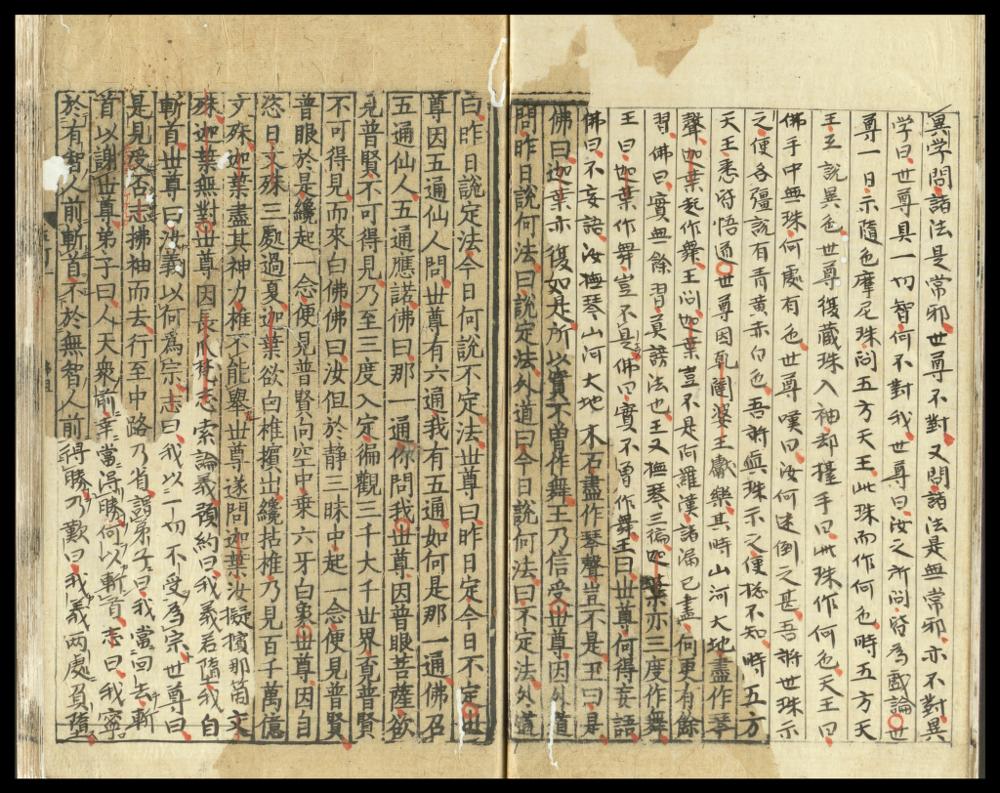 異学問諸法是常邪世尊不對又問諸法是無常邪亦不對異
学曰世尊具一切智何不對我世尊曰汝之所問皆為戱論世
尊一日示隨色摩尼珠问五方天王此珠而作何色時五方天
王互說異色世尊復藏珠入袖却擡手曰此珠作何色天王曰
佛手中無珠何處有色世尊嘆曰汝何迷倒之甚吾將世珠示
之便各彊說有青黃赤白色吾將眞珠示之便揔不知時五方
天王悉皆悟道世尊因乹闥婆王獻樂其時山河大地盡作琴
聲迦葉起作舞王问迦葉豈不是阿羅漢諸漏已盡何更有餘
習佛曰實無餘習莫謗法也王又撫琴三徧迦葉亦三度作舞
王曰迦葉作舞豈不是佛曰實不曾作舞王曰世尊何得妄語
佛曰不妄語汝撫琴山河大地木石盡作琴聲豈不是王曰是
佛曰迦葉亦復如是所以實不曾作舞王乃信受世尊因外道
問昨日說何法曰說定法外道曰今日說何法曰不定法外道
曰昨日說定法今日何說不定法世尊曰昨日定今日不定世
尊因五通仙人問世尊有六通我有五通如何是那一通佛召
五通仙人五通應諾佛曰那一通你問我世尊因普眼菩薩欲
見普賢不可得見乃至三度入定徧觀三千大千世界覓普賢
不可得見而來白佛佛曰汝但於静三昧中起一念便見普賢
普眼於是纔起一念便見普賢向空中乗六牙白象世尊因自
恣日文殊三處過夏迦葉欲白椎擯出纔拈椎乃見百千萬億
文殊迦葉盡其神力椎不能擧世尊遂問迦葉汝擬擯那箇文
殊迦葉無對世尊因長爪梵志索論義預約曰我義若墮我自
斬首世尊曰汝義以何爲宗志曰我以一切不受為宗世尊曰
是見受否志拂袖而去行至中路乃省謂弟子曰我當回去斬
首以謝世尊弟子曰人天衆前幸當得勝何以斬首志曰我寧
於有智人前斬首不於無智人前得勝乃歎曰我義兩處負墮